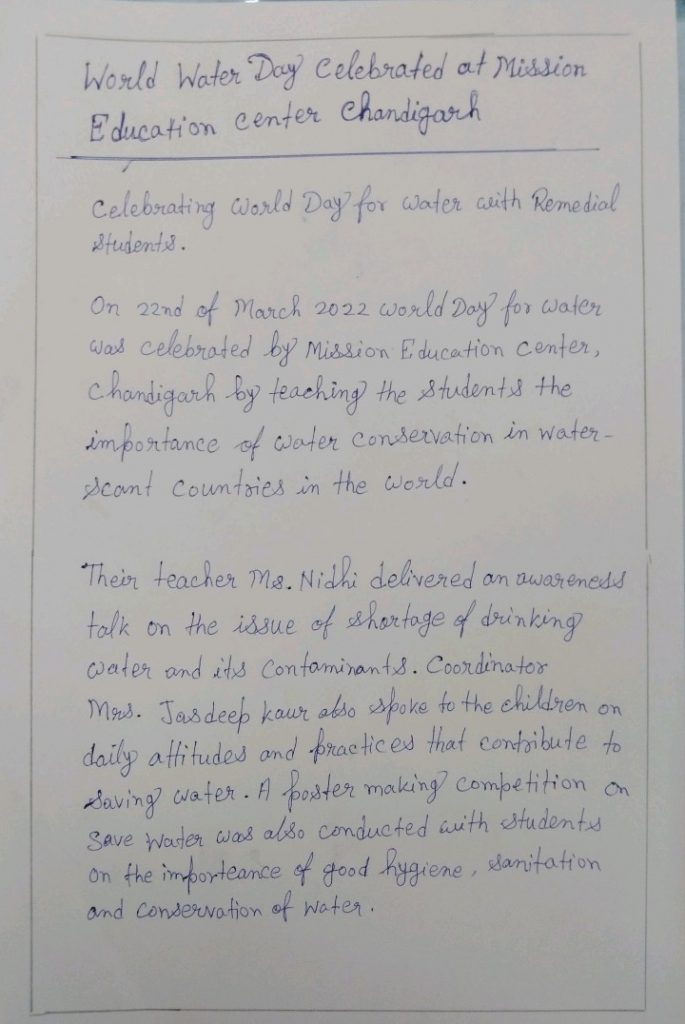 World Water Day Celebrated at Mission
Education Center Chandigarh
Celebrating World Day for water with Remedial
Students.
On 22nd of March 2022 world Day for water
was celebrated by Mission Education Center,
Chandigarh by teaching the students the
importance of water conservation in water-
scant countries in the world.
Their teacher Ms. Nidhi delivered an awareness
talk on the issue of shortage of drinking
water and its contaminants. Coordinator
Mrs. Jasdeep kaur also spoke to the children on
daily attitudes and practices that contribute to
saving water. A poster making competition on
Save Water was also conducted with students
on the importeance of good hygiene, sanitation
and conservation of water.